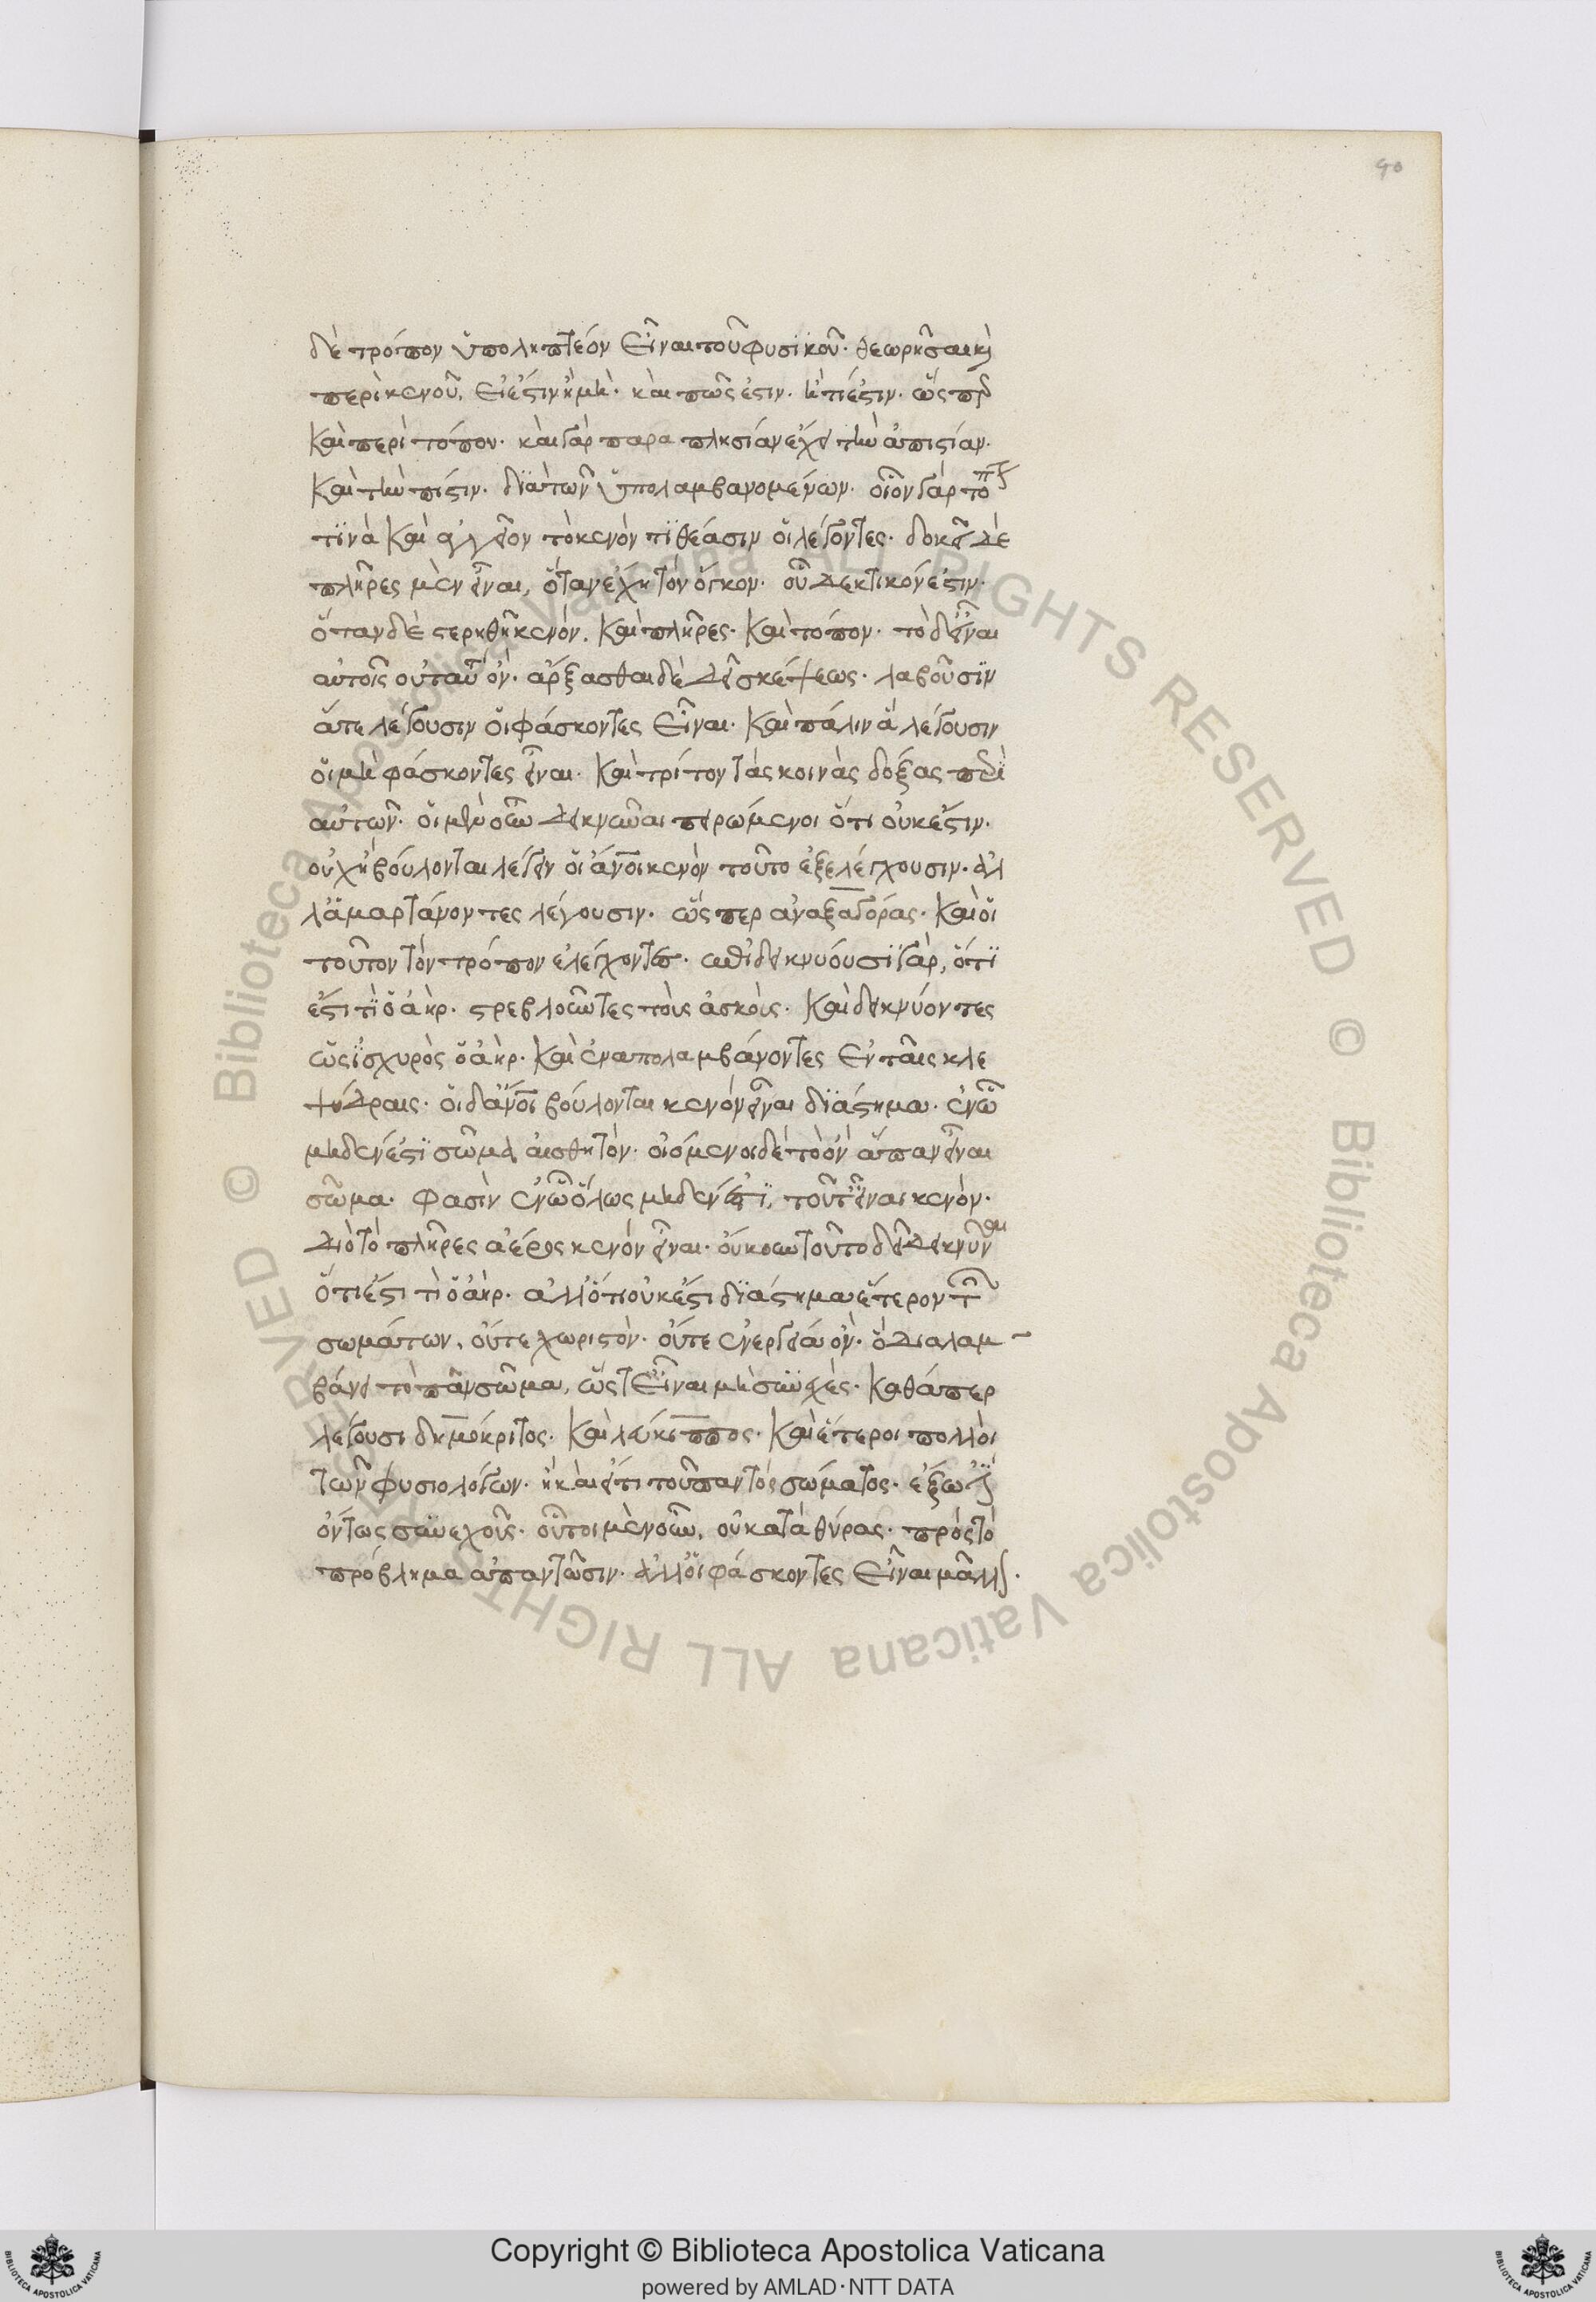 90
δὲ τρόπον ὑποληπτέον εἶναι τοῦ φυσικοῦ· θεωρῆσαι κὶ
περὶ κενοῦ, εἰ ἔστιν ἢ μὴ· καὶ πῶς ἔστιν· ἢ τί ἐστιν· ὥσπερ
καὶ περὶ τόπου· καὶ γὰρ παραπλησίαν ἔχει τὴν ἀπιστίαν·
καὶ τὴν πίστιν· διὰ τῶν ὑπολαμβανομένων· οἷον γὰρ τόπον
τινὰ καὶ ἀγγεῖον τὸ κενὸν τιθέασιν οἱ λέγοντες· δοκεῖ δὲ
πλῆρες μὲν εἶναι, ὅταν ἔχη τὸν ὄγκον· οὗ δεκτικόν ἐστιν·
ὅταν δὲ στερηθῆ κενόν· καὶ πλῆρες· καὶ τόπον· τὸ δ' εἶναι
αὐτοῖς οὐ ταὐτὸ ὄν· ἄρξασθαι δὲ δεῖ σκέψεως· λαβοῦσιν
ἅ τε λέγουσιν οἱ φάσκοντες εἶναι· καὶ πάλιν ἃ λέγουσιν
οἱ μὴ φάσκοντες εἶναι· καὶ τρίτον τὰς κοινὰς δόξας περὶ
αὐτῶν· οἱ μὲν οὖν δεικνύναι πειρώμενοι ὅτι οὐκ ἔστιν·
οὐχ ἣ βούλονται λέγειν οἱ ἄνθρωποι κενὸν τοῦτο ἐξελέγχουσιν· ἀλ
λ' ἁμαρτάνοντες λέγουσιν· ὥσπερ ἀναξαγόρας· καὶ οἱ
τοῦτον τὸν τρόπον ἐλέγχοντες· ἐπιδεικνύουσι γὰρ, ὅτι
ἔστι τὶ ὁ ἀὴρ· στρεβλοῦντες τοὺς ἀσκοὺς· καὶ δεικνύοντες
ὡς ἰσχυρὸς ὁ ἀὴρ· καὶ ἐναπολαμβάνοντες ἐν ταῖς κλε
ψύδραις· οἱ δ' ἄνθρωποι βούλονται κενὸν εἶναι διάστημα· ἐν ὧ
μηδέν ἐστι σῶμα αἰσθητὸν· οἰόμενοι δὲ τὸ ὂν ἅπαν εἶναι
σῶμα· φασὶν ἐν ὧ ὅλως μηδέν ἐστι, τοῦτ' εἶναι κενὸν·
διὸ τὸ πλῆρες ἀέρος κενὸν εἶναι· οὔκουν τοῦτο δεῖ δεικνύναι
ὅτι ἔστι τὶ ὁ ἀὴρ· ἀλλ' ὅτι οὐκ ἔστι διάστημα ἕτερον τῶν
σωμάτων, οὔτε χωριστὸν· οὔτε ἐνεργεία ὂν· ὃ διαλαμ
βάνει τὸ πᾶν σῶμα, ὥστ' εἶναι μὴ συνεχὲς· καθάπερ
λέγουσι δημόκριτος· καὶ λεύκιππος· καὶ ἕτεροι πολλοὶ
τῶν φυσιολόγων· ἢ καὶ εἴ τι τοῦ παντὸς σώματος· ἔξω ἐστὶν
ὄντος συνεχοῦς· οὗτοι μὲν οὖν, οὐ κατὰ θύρας· πρὸς τὸ
πρόβλημα ἀπαντῶσιν· ἀλλ' οἱ φάσκοντες εἶναι μᾶλλον·
Copyright © Biblioteca Apostolica Vaticana
powered by AMLAD·NTT DATA